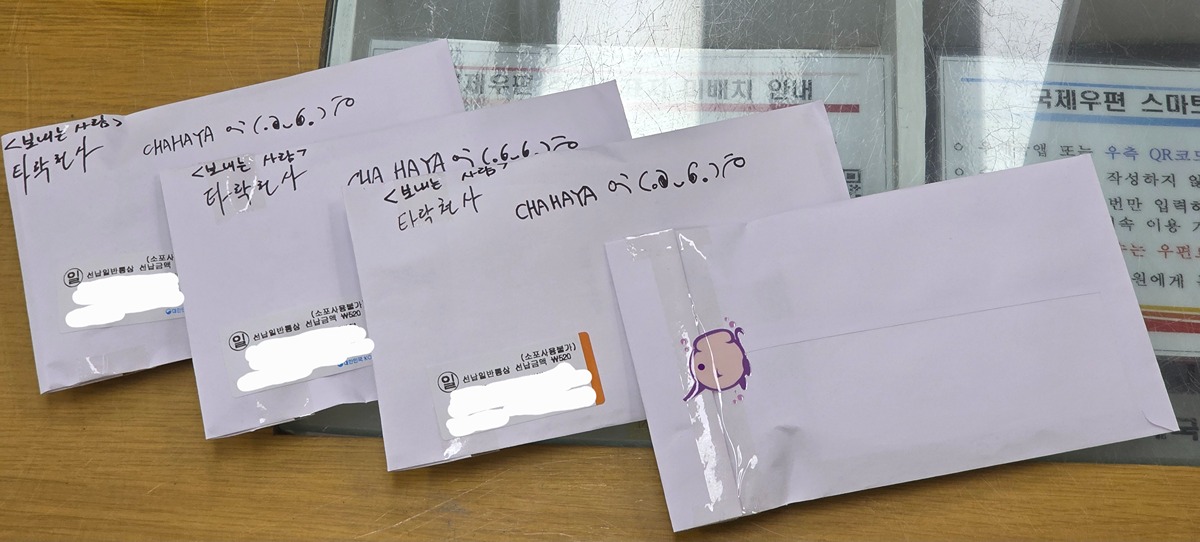 <보내는 사람>
타락천사
CHAHAYA
일
선납일반통상 선납금액
(소포사용불가)
<보내는 사람>
타락천사
CHA HAYA
일
선납일반통상 선납금액 ₩520
(소포사용불가)
대한민국 KO
<보내는 사람>
타락천사
CHAHAYA
일
선납일반통상 선납금액 ₩520
(소포사용불가)
안내
국제우편 스마트
또는 우측 QR코드
작성하지 않
번만 입력하
이용
우편
원에게